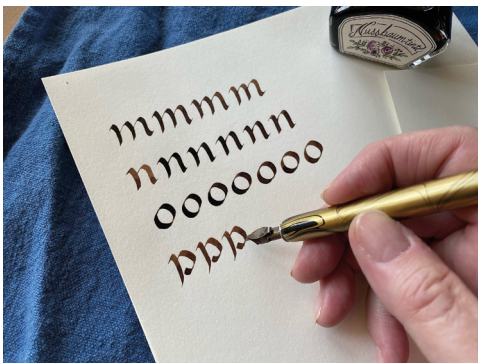 Nussbaumtinte
mmmmm
nnnnnnn
ooooooo
ppp